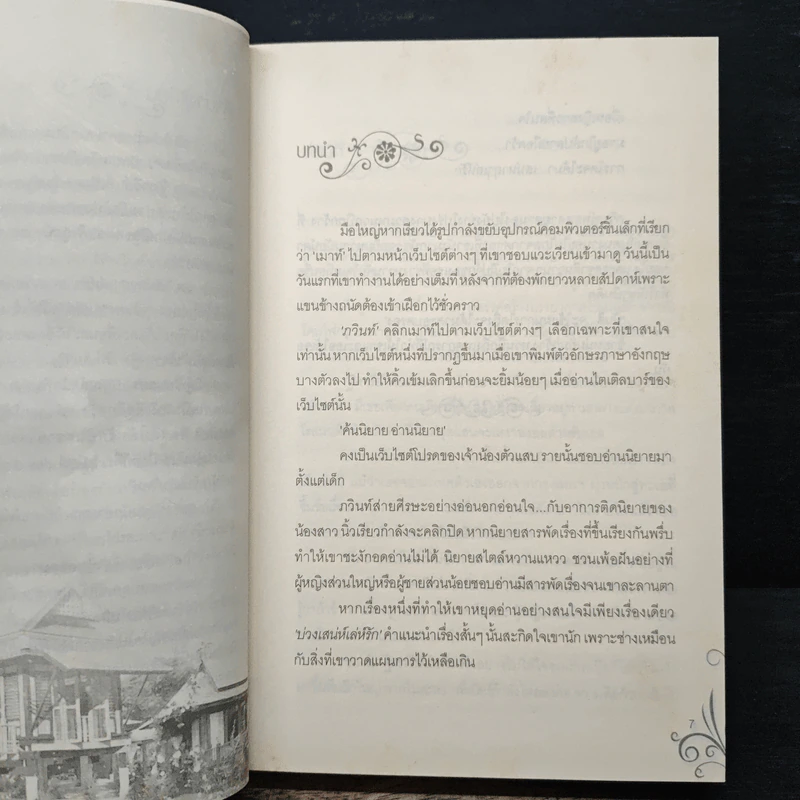 บทนำ
มือใหญ่หากเรียวได้รูปกำลังขยับอุปกรณ์คอมพิวเตอร์ชิ้นเล็กที่เรียก
ว่า 'เมาท์' ไปตามหน้าเว็บไซต์ต่างๆ ที่เขาชอบแวะเวียนเข้ามาดู วันนี้เป็น
วันแรกที่เขาทำงานได้อย่างเต็มที่ หลังจากที่ต้องพักยาวหลายสัปดาห์เพราะ
แขนข้างถนัดต้องเข้าเฝือกไว้ชั่วคราว
'ภวินท์' คลิกเมาท์ไปตามเว็บไซต์ต่างๆ เลือกเฉพาะที่เขาสนใจ
เท่านั้น หากเว็บไซต์หนึ่งที่ปรากฏขึ้นมาเมื่อเขาพิมพ์ตัวอักษรภาษาอังกฤษ
บางตัวลงไป ทำให้คิ้วเข้มเลิกขึ้นก่อนจะยิ้มน้อยๆ เมื่ออ่านไตเติลบาร์ของ
เว็บไซต์นั้น
'ค้นนิยาย อ่านนิยาย'
คงเป็นเว็บไซต์โปรดของเจ้าน้องตัวแสบ รายนั้นชอบอ่านนิยายมา
ตั้งแต่เด็ก
ภวินท์ส่ายศีรษะอย่างอ่อนอกอ่อนใจ...กับอาการติดนิยายของ
น้องสาว นิ้วเรียวกำลังจะคลิกปิด หากนิยายสารพัดเรื่องที่ขึ้นเรียงกันพรึ่บ
ทำให้เขาชะงักอดอ่านไม่ได้ นิยายสไตล์หวานแหวว ชวนเพ้อฝันอย่างที่
ผู้หญิงส่วนใหญ่หรือผู้ชายส่วนน้อยชอบอ่านมีสารพัดเรื่องจนเขาละลานตา
หากเรื่องหนึ่งที่ทำให้เขาหยุดอ่านอย่างสนใจมีเพียงเรื่องเดียว
'บ่วงเสน่ห์เล่ห์รัก' คำแนะนำเรื่องสั้นๆ นั้นสะกิดใจเขานัก เพราะช่างเหมือน
กับสิ่งที่เขาวาดแผนการไว้เหลือเกิน
7